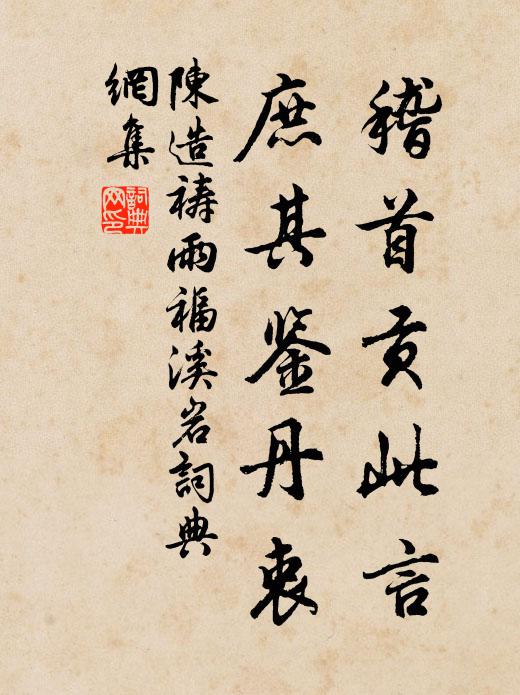 稽首貢此言
庶其鉴丹衷
陳造禱雨福溪岩詞典
網集
詞典
网印